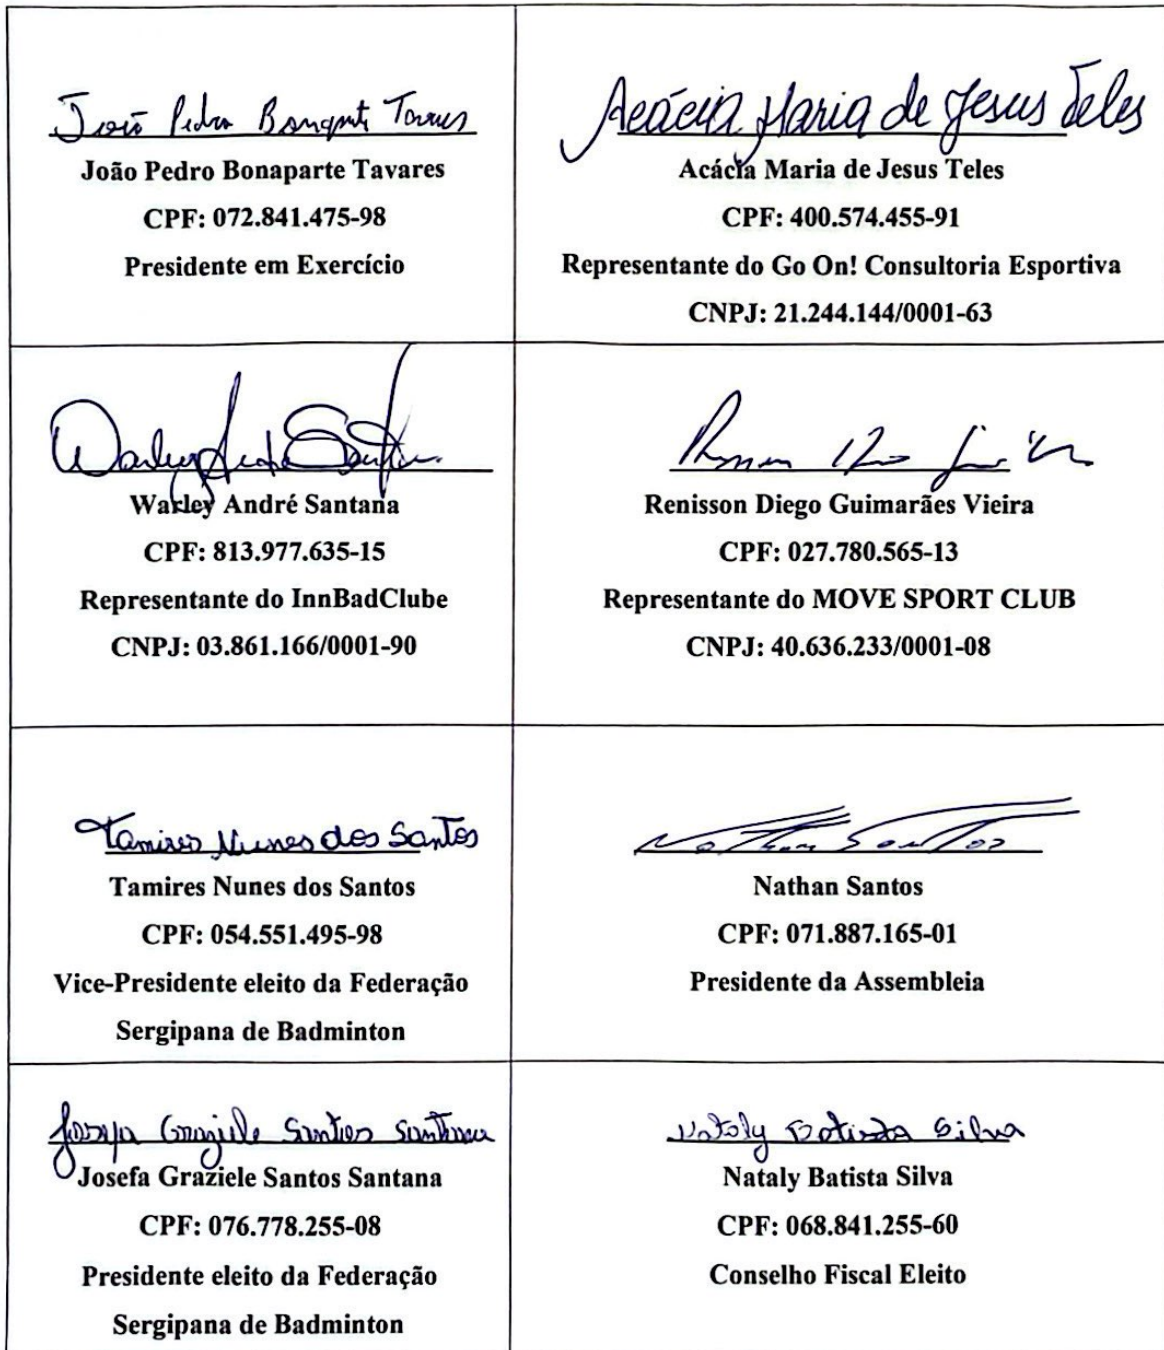 João Pedro Bonaparte Tavares
João Pedro Bonaparte Tavares
CPF: 072.841.475-98
Presidente em Exercício
Acácia Maria de Jesus Teles
Acácia Maria de Jesus Teles
CPF: 400.574.455-91
Representante do Go On! Consultoria Esportiva
CNPJ: 21.244.144/0001-63
Warley André Santana
CPF: 813.977.635-15
Representante do InnBadClube
CNPJ: 03.861.166/0001-90
Renisson Diego Guimarães Vieira
CPF: 027.780.565-13
Representante do MOVE SPORT CLUB
CNPJ: 40.636.233/0001-08
Tamires Nunes dos Santos
Tamires Nunes dos Santos
CPF: 054.551.495-98
Vice-Presidente eleito da Federação
Sergipana de Badminton
Nathan Santos
Nathan Santos
CPF: 071.887.165-01
Presidente da Assembleia
Josefa Graziele Santos Santana
Josefa Graziele Santos Santana
CPF: 076.778.255-08
Presidente eleito da Federação
Sergipana de Badminton
Nataly Batista Silva
Nataly Batista Silva
CPF: 068.841.255-60
Conselho Fiscal Eleito